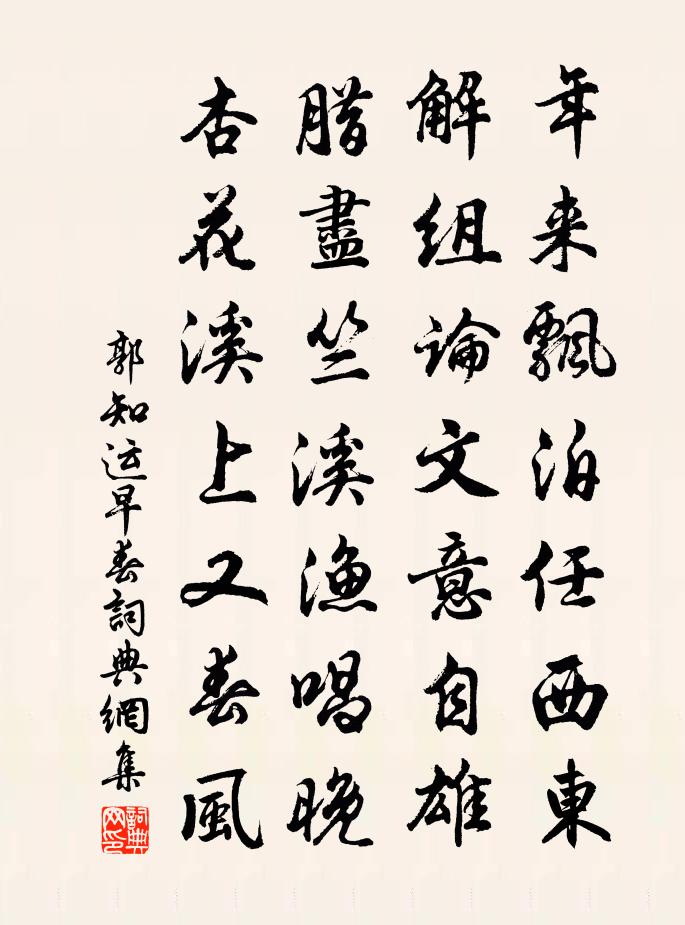 年来飄泊任西東
解組論文意自雄
腊盡竺溪漁唱晚
杏花溪上又春風
郭知运早春詞典網集
詞典網印